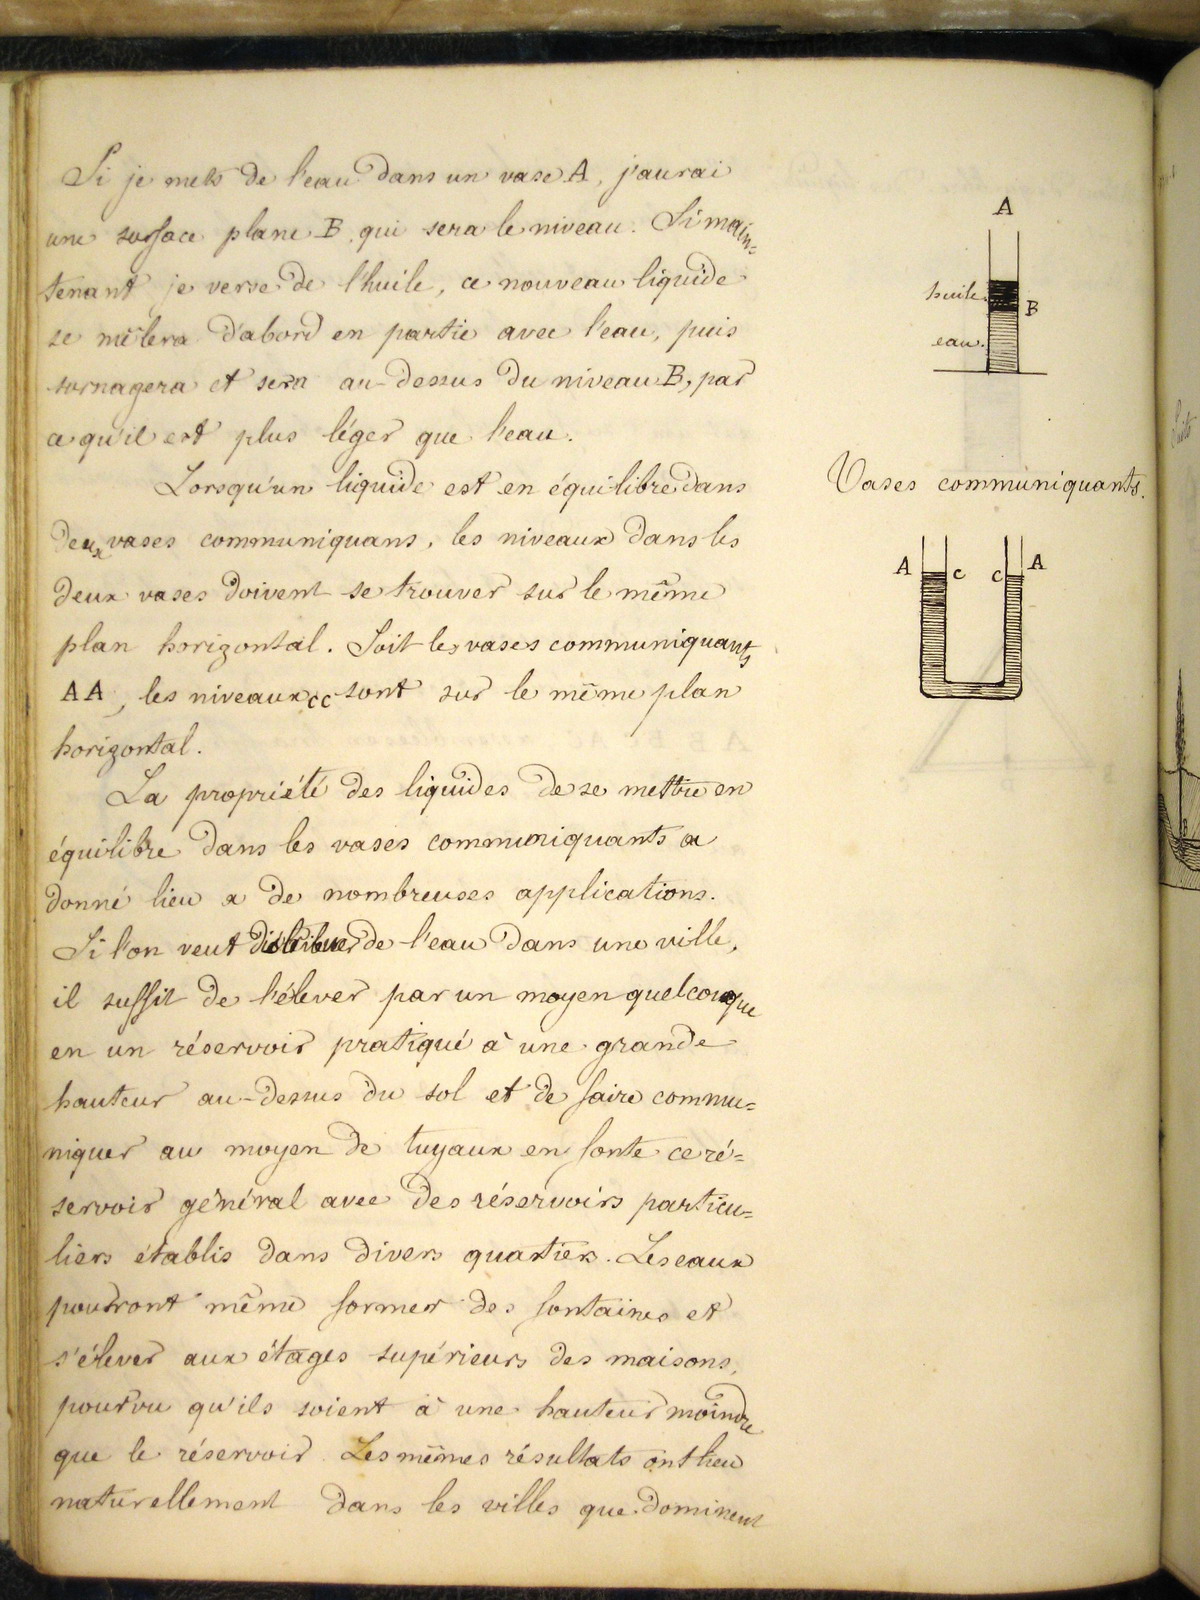 Si je mets de l'eau dans un vase A, j'aurai
une surface plane B qui sera le niveau. Si main=
tenant je verse de l'huile, ce nouveau liquide
se mêlera d'abord en partie avec l'eau, puis
surnagera et sera au-dessus du niveau B, par
ce qu'il est plus léger que l'eau.
Lorsqu'un liquide est en équilibre dans
deux vases communiquans, les niveaux dans les
deux vases doivent se trouver sur le même
plan horizontal. Soit les vases communiquants
AA, les niveaux cc sont sur le même plan
horizontal.
La propriété des liquides de se mettre en
équilibre dans les vases communiquants a
donné lieu a de nombreuses applications.
Si l'on veut distribuer de l'eau dans une ville,
il suffit de l'élever par un moyen quelconque
en un réservoir pratiqué à une grande
hauteur au-dessus du sol et de faire commu=
niquer au moyen de tuyaux en fonte ce ré=
servoir général avec des réservoirs particu=
liers établis dans divers quartiers. Les eaux
pourront même former des fontaines et
s'élever aux étages supérieurs des maisons,
pourvu qu'ils soient à une hauteur moindre
que le réservoir. Les mêmes résultats ont lieu
naturellement dans les villes que dominent
A
huile.
B
eau.
Vases communiquants.
A c c A